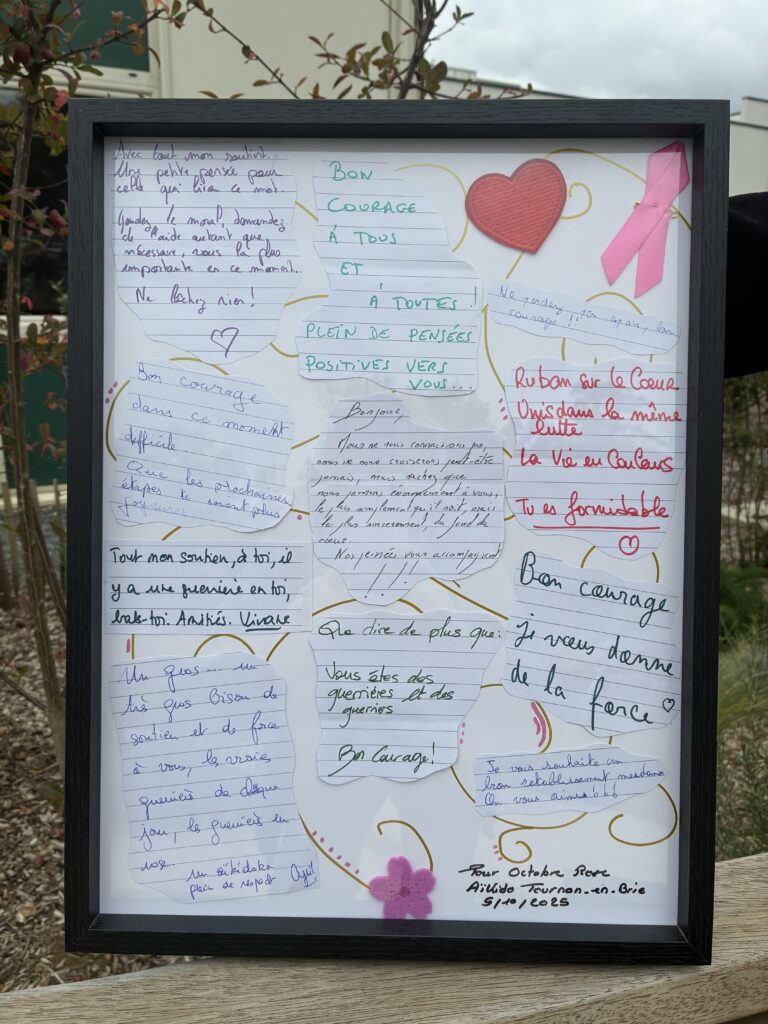 Avec tout mon soutien.
Une petite pensée pour
celle qui lira ce mot.
Gardez le moral, demandez
de l'aide autant que
nécessaire, vous la plus
importante en ce moment.
Ne lâchez rien !
BON
COURAGE
À TOUS
ET
À TOUTES !
PLEIN DE PENSÉES
POSITIVES VERS
VOUS...
Ne perdez pas espoir, bon
courage !!
Bon courage
dans ce moment
difficile.
Que les prochaines
étapes te soient plus
joyeuses
Bonjour,
Nous ne nous connaissons pas,
nous ne nous croiserons peut-être
jamais, mais sachez que
nous pensons énormément à vous,
le plus simplement qu'il soit, mais
le plus sincèrement, du fond du
coeur.
Nos pensées vous accompagnent
!!!!
Ruban sur le Coeur
Unis dans la même
lutte
La Vie en Couleurs
Tu es formidable
Tout mon soutien, à toi, il
y a une guerrière en toi,
bats-toi. Amitiés. Viviane
Que dire de plus que:
Vous êtes des
guerrières et des
guerriers
Bon Courage!
Bon courage
je vous donne
de la force
Un gros... un
très gros bisou de
soutien et de force
à vous, les vraies
guerrières de chaque
jour, les guerrières en
rose.
un aïkidoka
plein de respect
Je vous souhaite un
bon rétablissement mesdames
On vous aime !!!
Pour Octobre Rose
Aïkido Tournan-en-Brie
5/10/2025